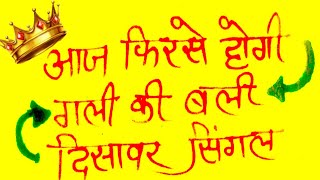 आज फिरसे होगी
गली की बली
दिसावर सिंगल